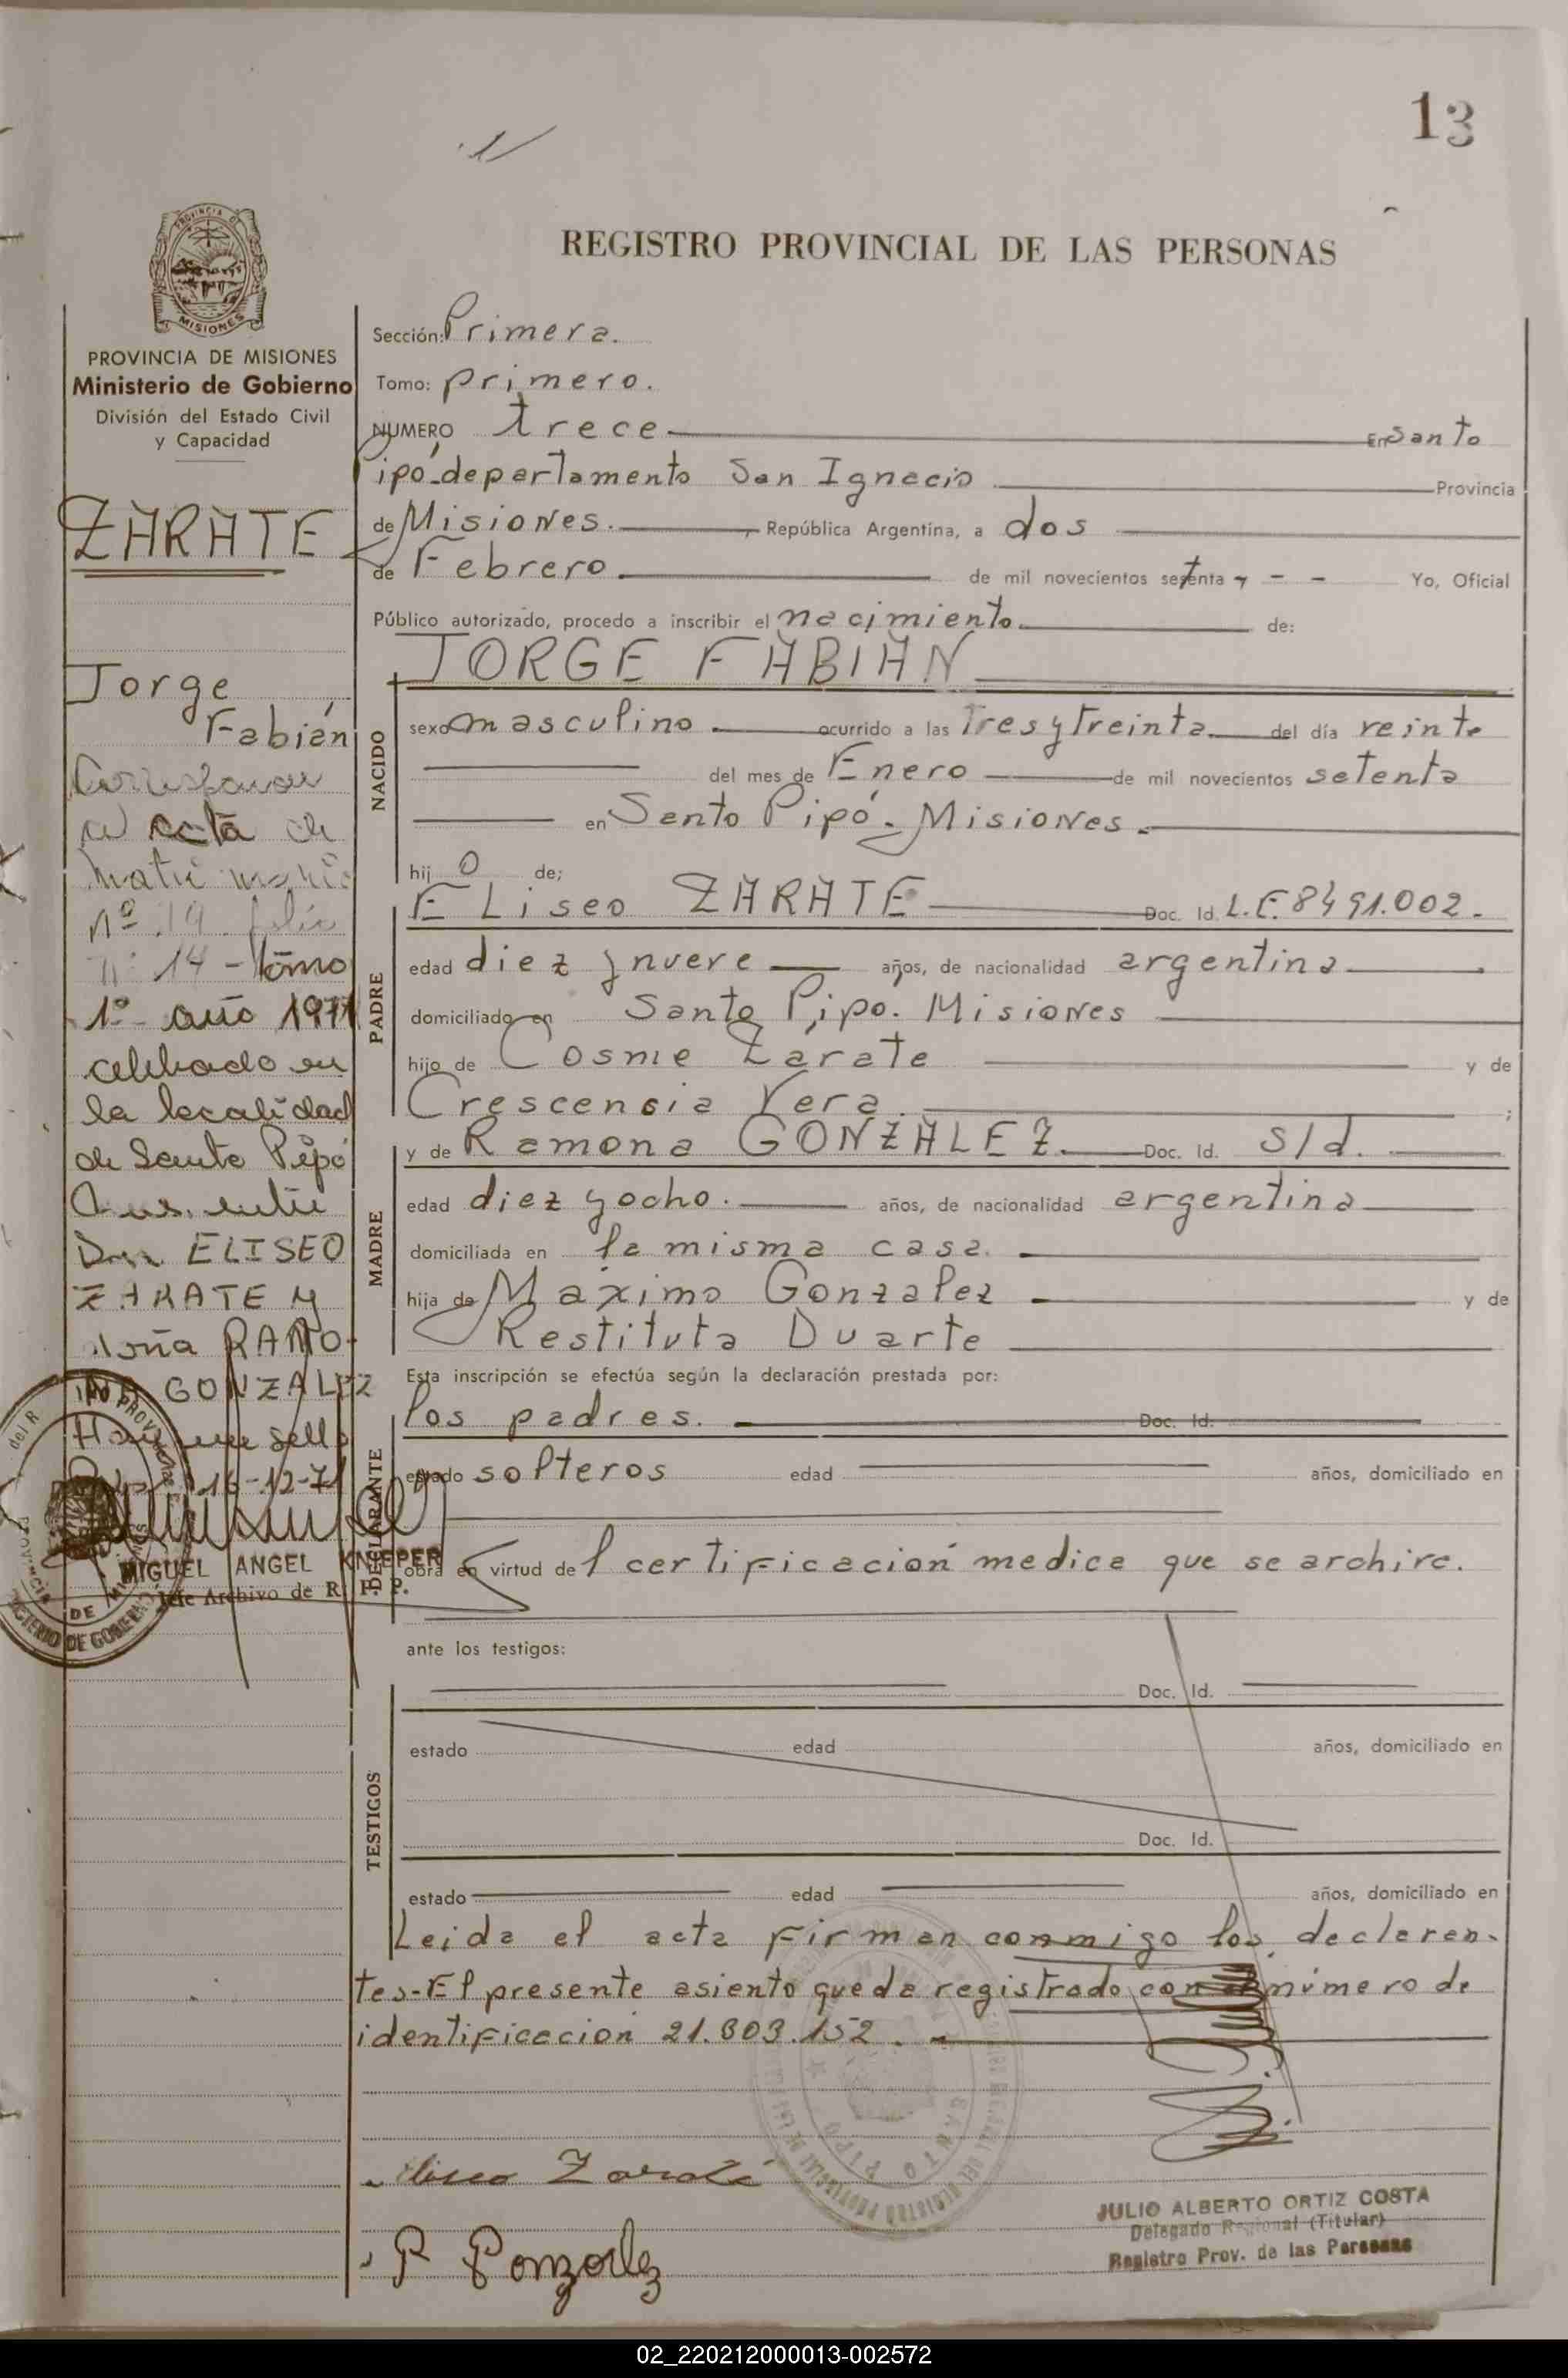 13
REGISTRO PROVINCIAL DE LAS PERSONAS
PROVINCIA DE
MISIONES
PROVINCIA DE MISIONES
Ministerio de Gobierno
División del Estado Civil
y Capacidad
ZÁRATE
Jorge
Fabián
acta de
matrimonio
nº 19 folio
nº 14 - tomo
1º año 1971
celebrado en
la localidad
de Santo Pipó
entre
Don ELISEO
ZARATE y
doña RAMO-
NA GONZALEZ
Hay un sello
16-12-71
MIGUEL ANGEL KNIEPER
Jefe Archivo de R. P. P.
Sección: Primera.
Tomo: primero.
NUMERO trece En Santo
Pipó-departamento San Ignacio Provincia
de Misiones. , República Argentina, a dos
de Febrero de mil novecientos setenta - - - Yo, Oficial
Público autorizado, procedo a inscribir el nacimiento. de:
JORGE FABIAN
NACIDO
sexo masculino ocurrido a las tres y treinta del día veinte
del mes de Enero de mil novecientos setenta
en Santo Pipó - Misiones.
hij o de;
PADRE
Eliseo ZARATE Doc. Id. L.E. 8491.002.
edad diez y nueve años, de nacionalidad argentina
domiciliado en Santo Pipo. Misiones
hijo de Cosme Zarate y de
Crescencia Vera. ;
MADRE
y de Ramona GONZALEZ. Doc. Id. S/d.
edad diez y ocho. años, de nacionalidad argentina
domiciliada en la misma casa.
hija de Maximo Gonzalez y de
Restituta Duarte
Esta inscripción se efectúa según la declaración prestada por:
DECLARANTE
los padres. Doc. Id.
estado solteros edad años, domiciliado en
obra en virtud del certificación medica que se archiva.
ante los testigos:
TESTIGOS
Doc. Id.
estado edad años, domiciliado en
Doc. Id.
estado edad años, domiciliado en
Leida el acta firman conmigo los declaran-
tes-El presente asiento queda registrado con número de
identificación 21.303.152.
Eliseo Zarate
R Gonzalez
SANTO PIPO
JULIO ALBERTO ORTIZ COSTA
Delegado Regional (Titular)
Registro Prov. de las Personas
02_220212000013-002572